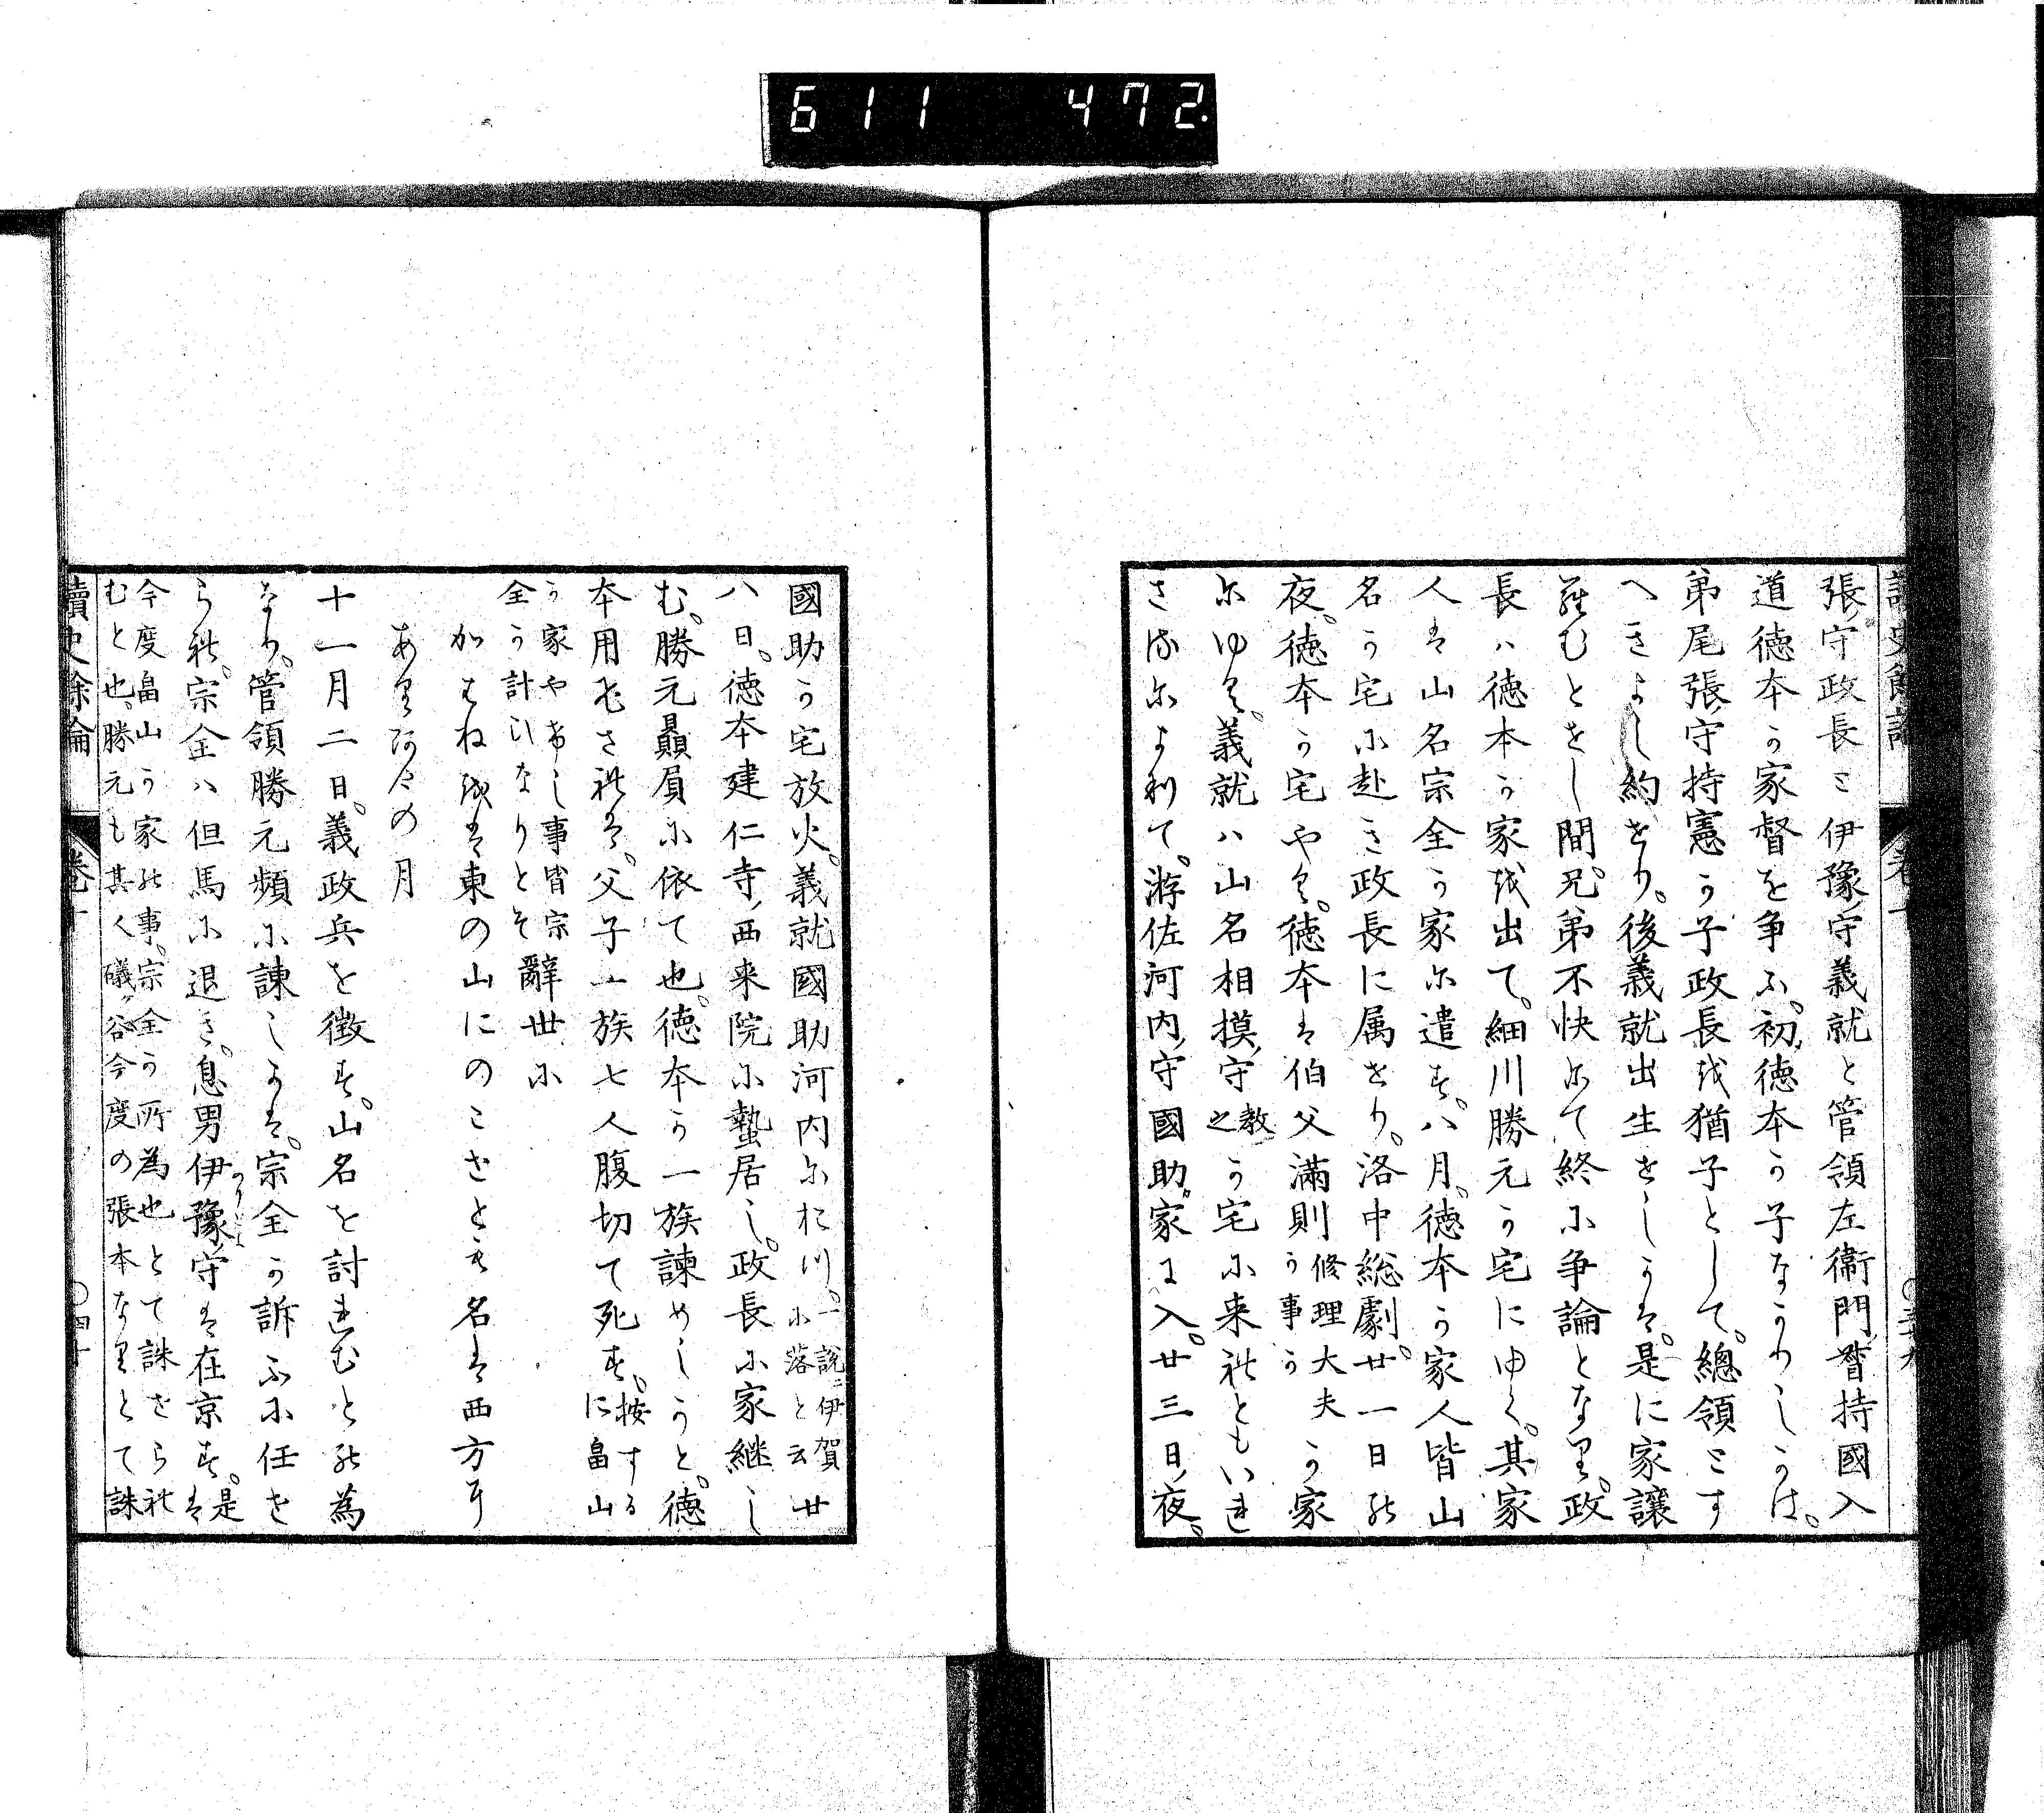 611 472
張守政長と伊豫守義就と管領左衛門督持國入
道徳本か家督を争ふ。初徳本か子なかりしかは。
弟尾張守持憲か子政長を猶子として。總領とす
へきよし約せり。後義就出生せしかは。是に家譲
らむとせし間。兄弟不快にて終に争論となる。政
長ハ徳本か家を出て。細川勝元か宅にゆく。其家
人は山名宗全か家に遣す。八月。徳本か家人皆山
名か宅に赴き政長に属せり。洛中総劇。廿一日の
夜。徳本か宅やく。徳本は伯父満則修理大夫か事か家
にゆく。義就ハ山名相摸守教之か宅に来れともいれ
さるによりて。游佐河内守國助家に入。廿三日夜。
國助か宅放火。義就國助河内におつ。一説ニ伊賀に落と云廿
八日。徳本建仁寺西来院に蟄居し。政長に家継し
む。勝元贔屓に依て也。徳本か一族諫めしかと。徳
本用ひされは。父子一族七人腹切て死す。按するに畠山
か家やけし事皆宗全か計ひなりとそ辭世に
かはね越は東の山にのこせとも名は西方に
あり阿けの月
十一月二日。義政兵を徴す。山名を討れむとの為
なり。管領勝元頻に諫しかは。宗全か訴ふに任せ
られ。宗全ハ但馬に退き。息男伊豫守は在京す。是は
今度畠山か家の事。宗全か所為也とて誅せられ
むと也。勝元も其く礒ヶ谷今度の張本なりとて誅
讀史餘論 巻十 〇四十